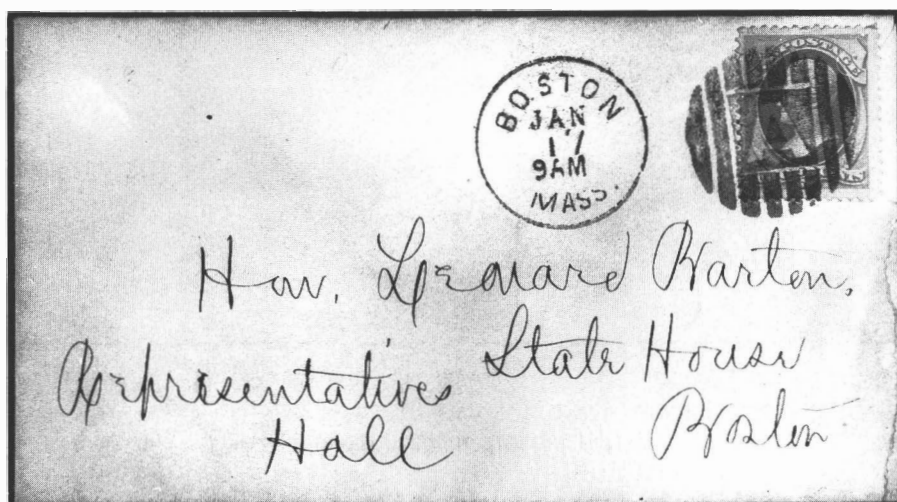 POSTAGE
BOSTON
JAN
17
9AM
MASS.
Hon. Leonard Barton,
State House
Representatives
Hall
Boston